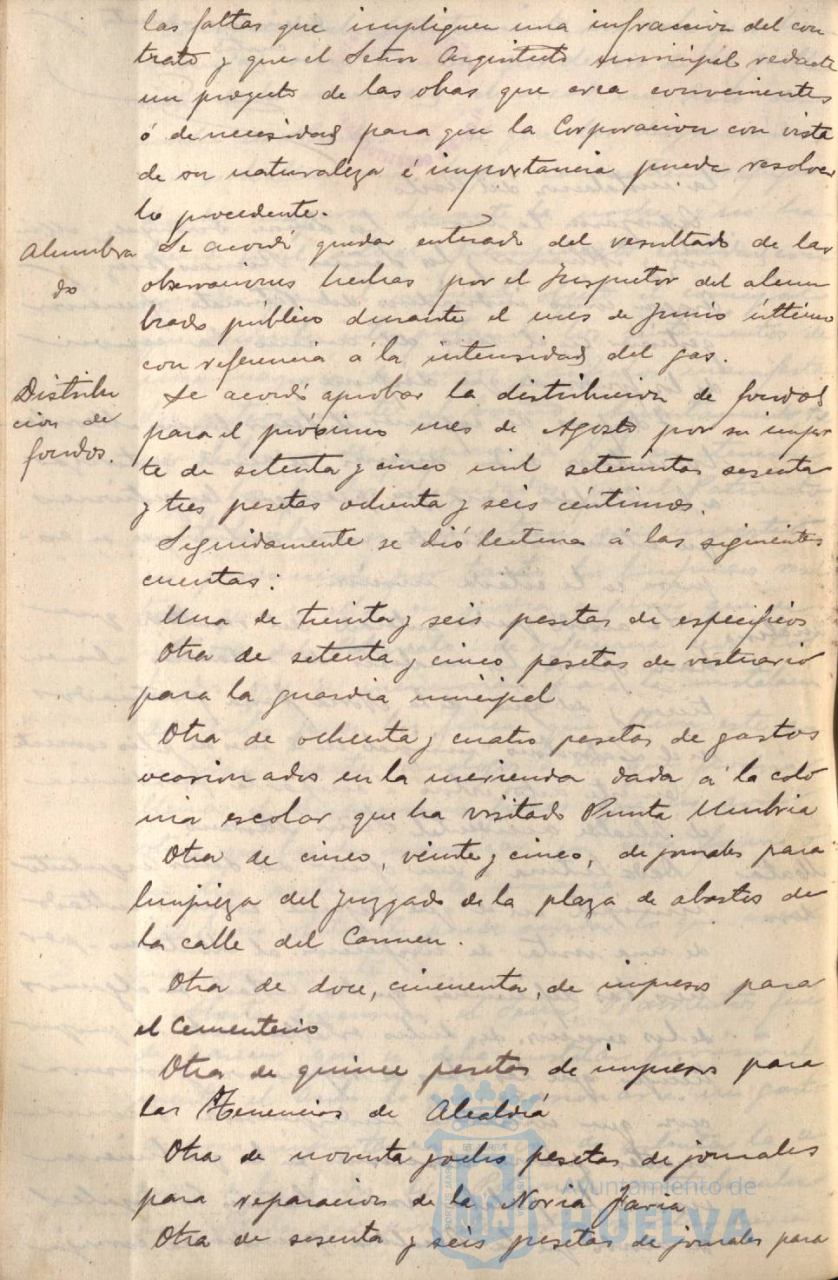 las faltas que impliquen una infraccion del con
trato y que el Señor Arquitecto municipal redacte
un proyecto de las obas que crea convenientes
ó de necesidad para que la Corporacion con vista
de su naturaleza é importancia pueda resolver
lo procedente.
Alumbra
do
Se acordó quedar enterado del resultado de las
observaciones hechas por el Inspector del alum
brado público durante el mes de Junio último
con referencia á la intensidad del gas.
Distribu
cion de
fondos.
Se acordó aprobar la distribucion de fondos
para el próximo mes de Agosto por su impor
te de setenta y cinco mil setecientas sesenta
y tres pesetas ochenta y seis céntimos.
Seguidamente se dió lectura á las siguientes
cuentas:
Una de treinta y seis pesetas de especificos
Otra de setenta y cinco pesetas de vestuario
para la guardia municipal
Otra de ochenta y cuatro pesetas de gastos
ocasionados en la merienda dada á la colo
nia escolar que ha visitado Punta Umbria
Otra de cinco, veinte y cinco, de jornales para
limpieza del Juzgado de la plaza de abastos de
la calle del Carmen.
Otra de doce, cincuenta, de impresos para
el Cementerio
Otra de quince pesetas de impresos para
las Tenencias de Alcaldía
Otra de noventa y ocho pesetas de jornales
para reparacion de la Noria
Otra de sesenta y seis pesetas de jornales para
Ayuntamiento de
HUELVA